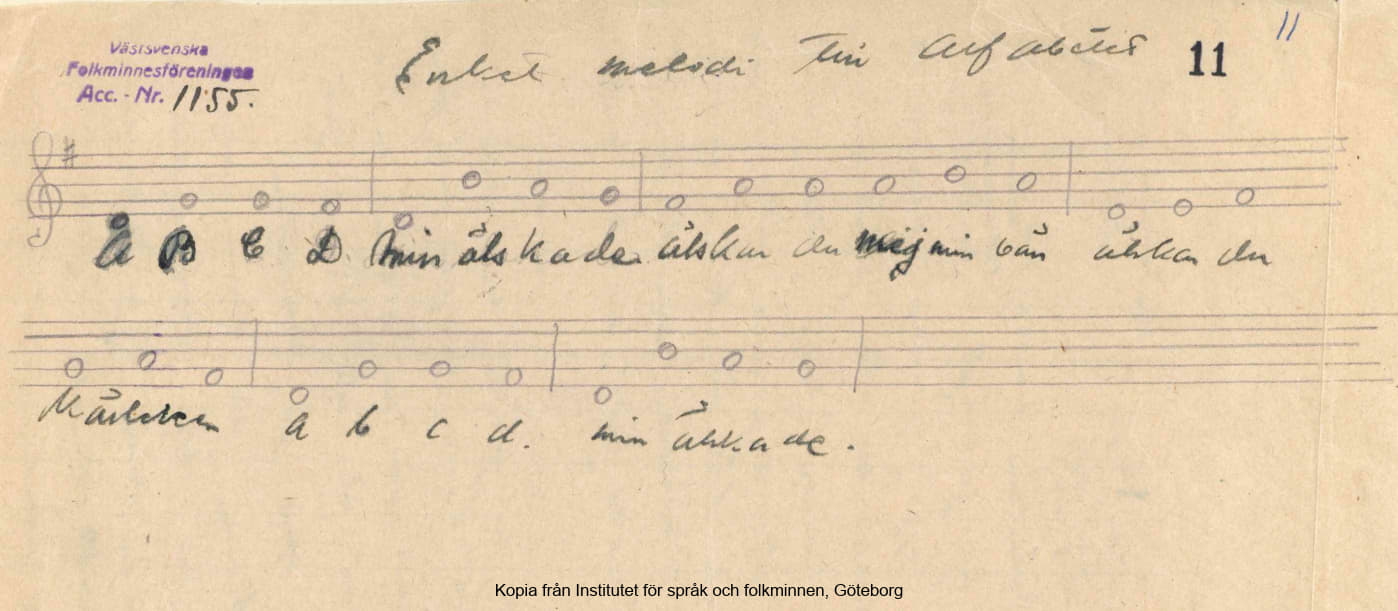 Västsvenska
Folkminnesföreningen
Acc. - Nr. 1155.
Enkel melodi till Alfabetet
11
11
A B C D min älskade älskar du mig min vän älskar du
Kärleken a b c d. min älskade.
Kopia från Institutet för språk och folkminnen, Göteborg